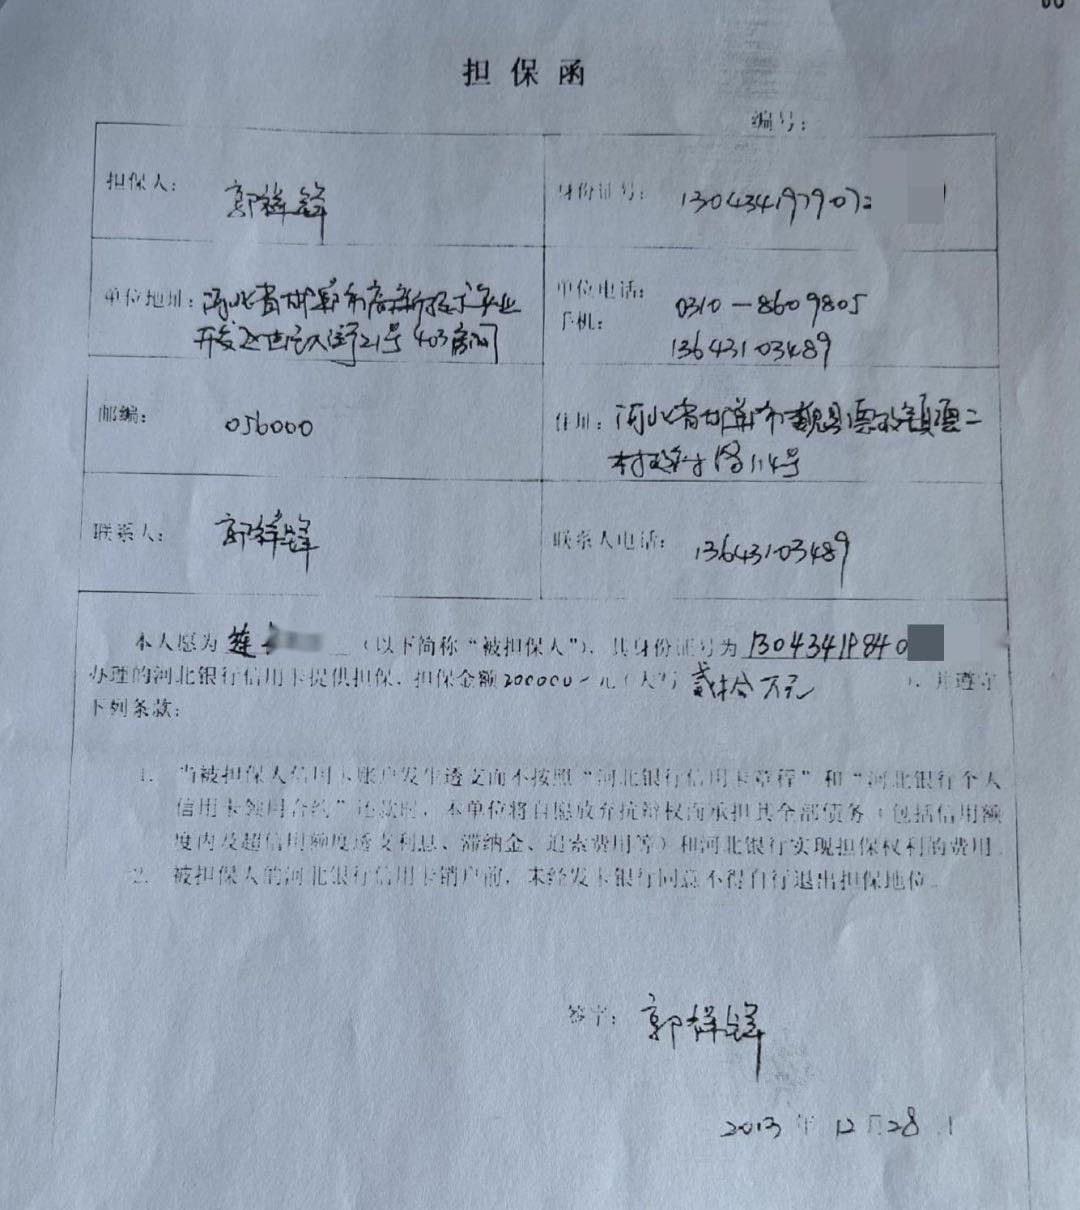 担保函
编号:
担保人: 郭祥锋 身份证号: 1304341979072
单位地址: 河北省邯郸市高新技术产业
开发区世纪大街21号403房间
单位电话: 0310-8609805
手机: 13643103489
邮编: 056000
住址: 河北省邯郸市魏县
114号
联系人: 郭祥锋 联系人电话: 13643103489
本人愿为 (以下简称“被担保人”), 其身份证号为 13043419840
办理的河北银行信用卡提供担保, 担保金额 200000 元(大写 贰拾万元 ), 并遵守
下列条款:
1. 当被担保人信用卡账户发生透支而不按照“河北银行信用卡章程”和“河北银行个人
信用卡领用合约”还款时, 本单位将自愿放弃抗辩权而承担其全部债务(包括信用额
度内及超信用额度透支利息、滞纳金、追索费用等)和河北银行实现担保权利的费用.
2. 被担保人的河北银行信用卡销户前, 未经发卡银行同意不得自行退出担保地位.
签字: 郭祥锋
2013 年 12 月 28 日